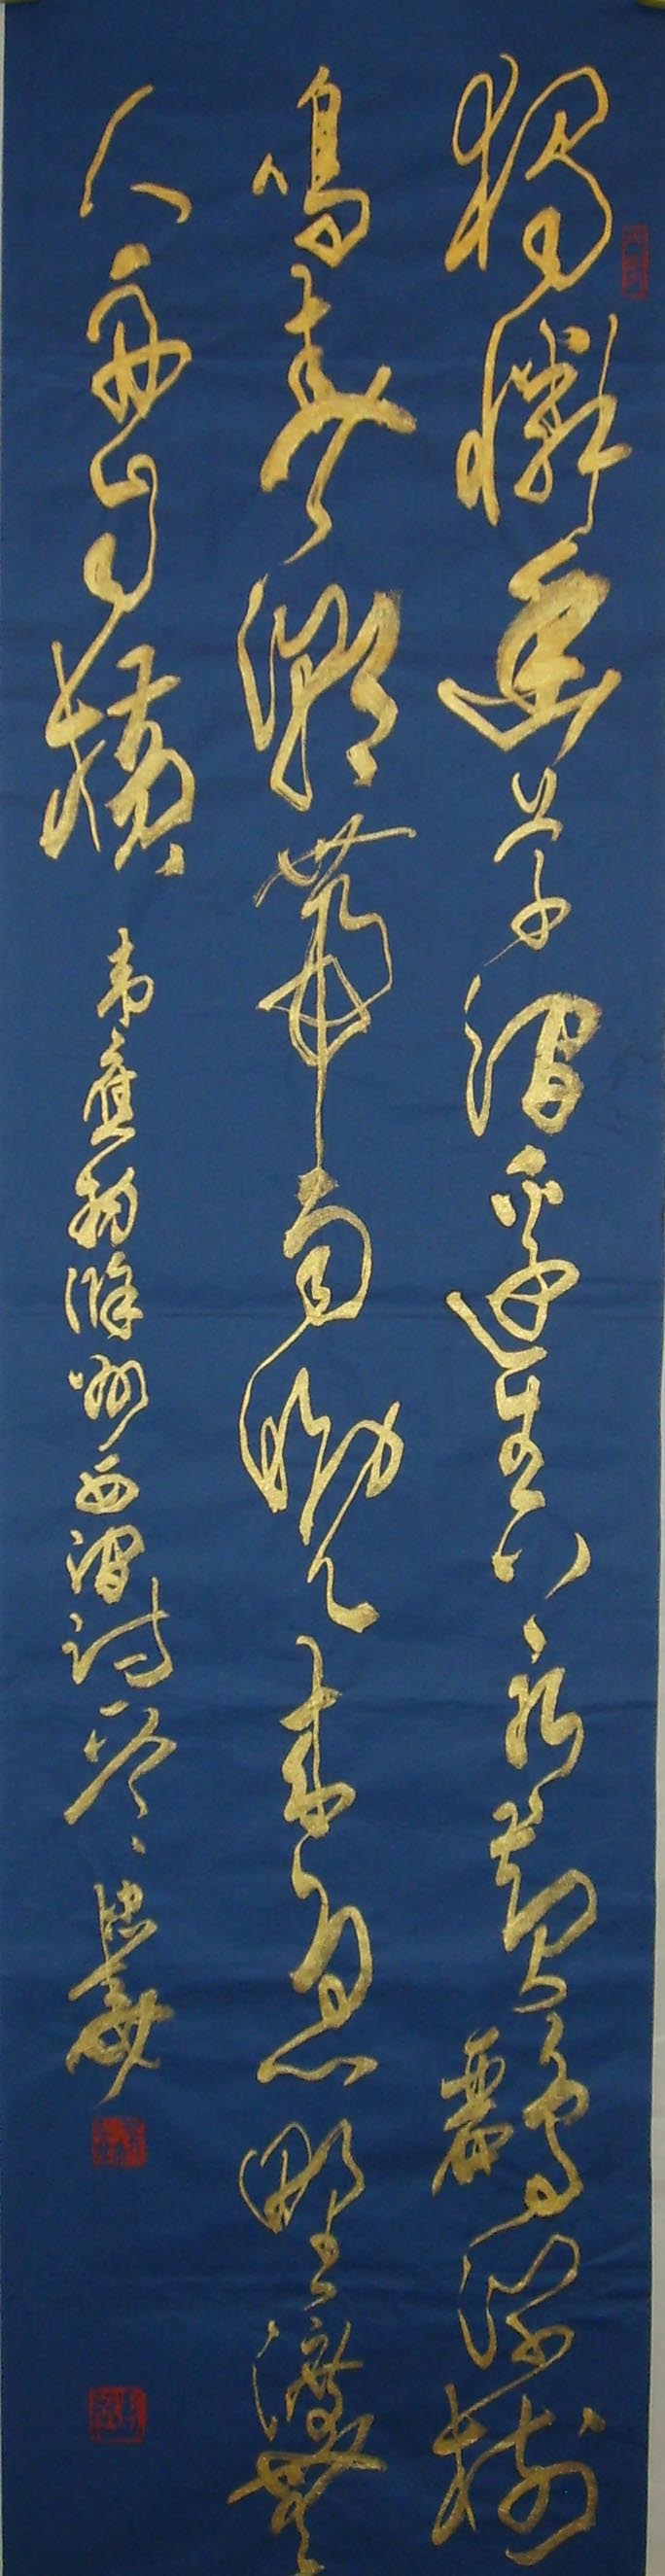 獨憐幽草澗邊生上有黃鸝深樹
鳴春潮帶雨晚來急野渡無
人舟自橫 韋應物滁州西澗詩